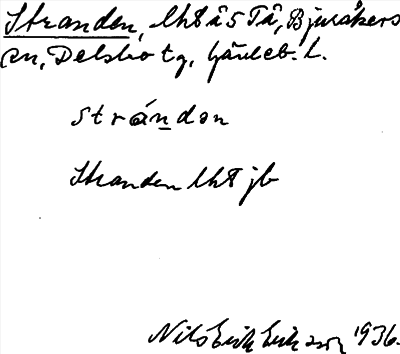 Stranden, lht å 5 Tå, Bjuråkers
sn, Delsbo tg, Gävleb. l.
strándən
Stranden lht jb
Nils Erik Eriksson 1936.